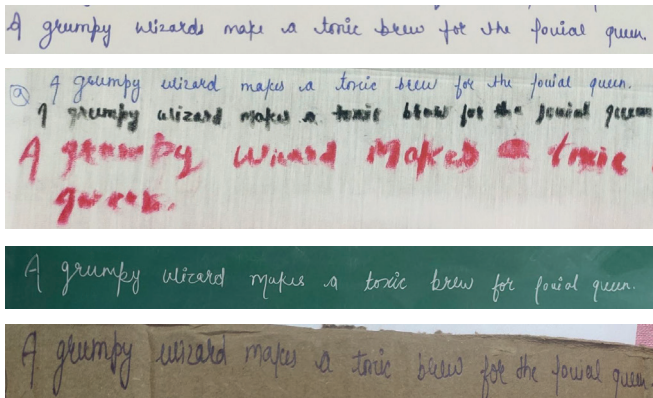 A grumpy wizards make a toxic brew for the jovial queen.
a) A grumpy wizard makes a toxic brew for the jovial queen.
A grumpy wizard makes a toxic brew for the jovial queen
A grumpy wizard makes a toxic
queen.
A grumpy wizard makes a toxic brew for jovial queen.
A grumpy wizard makes a toxic brew for the jovial queen.